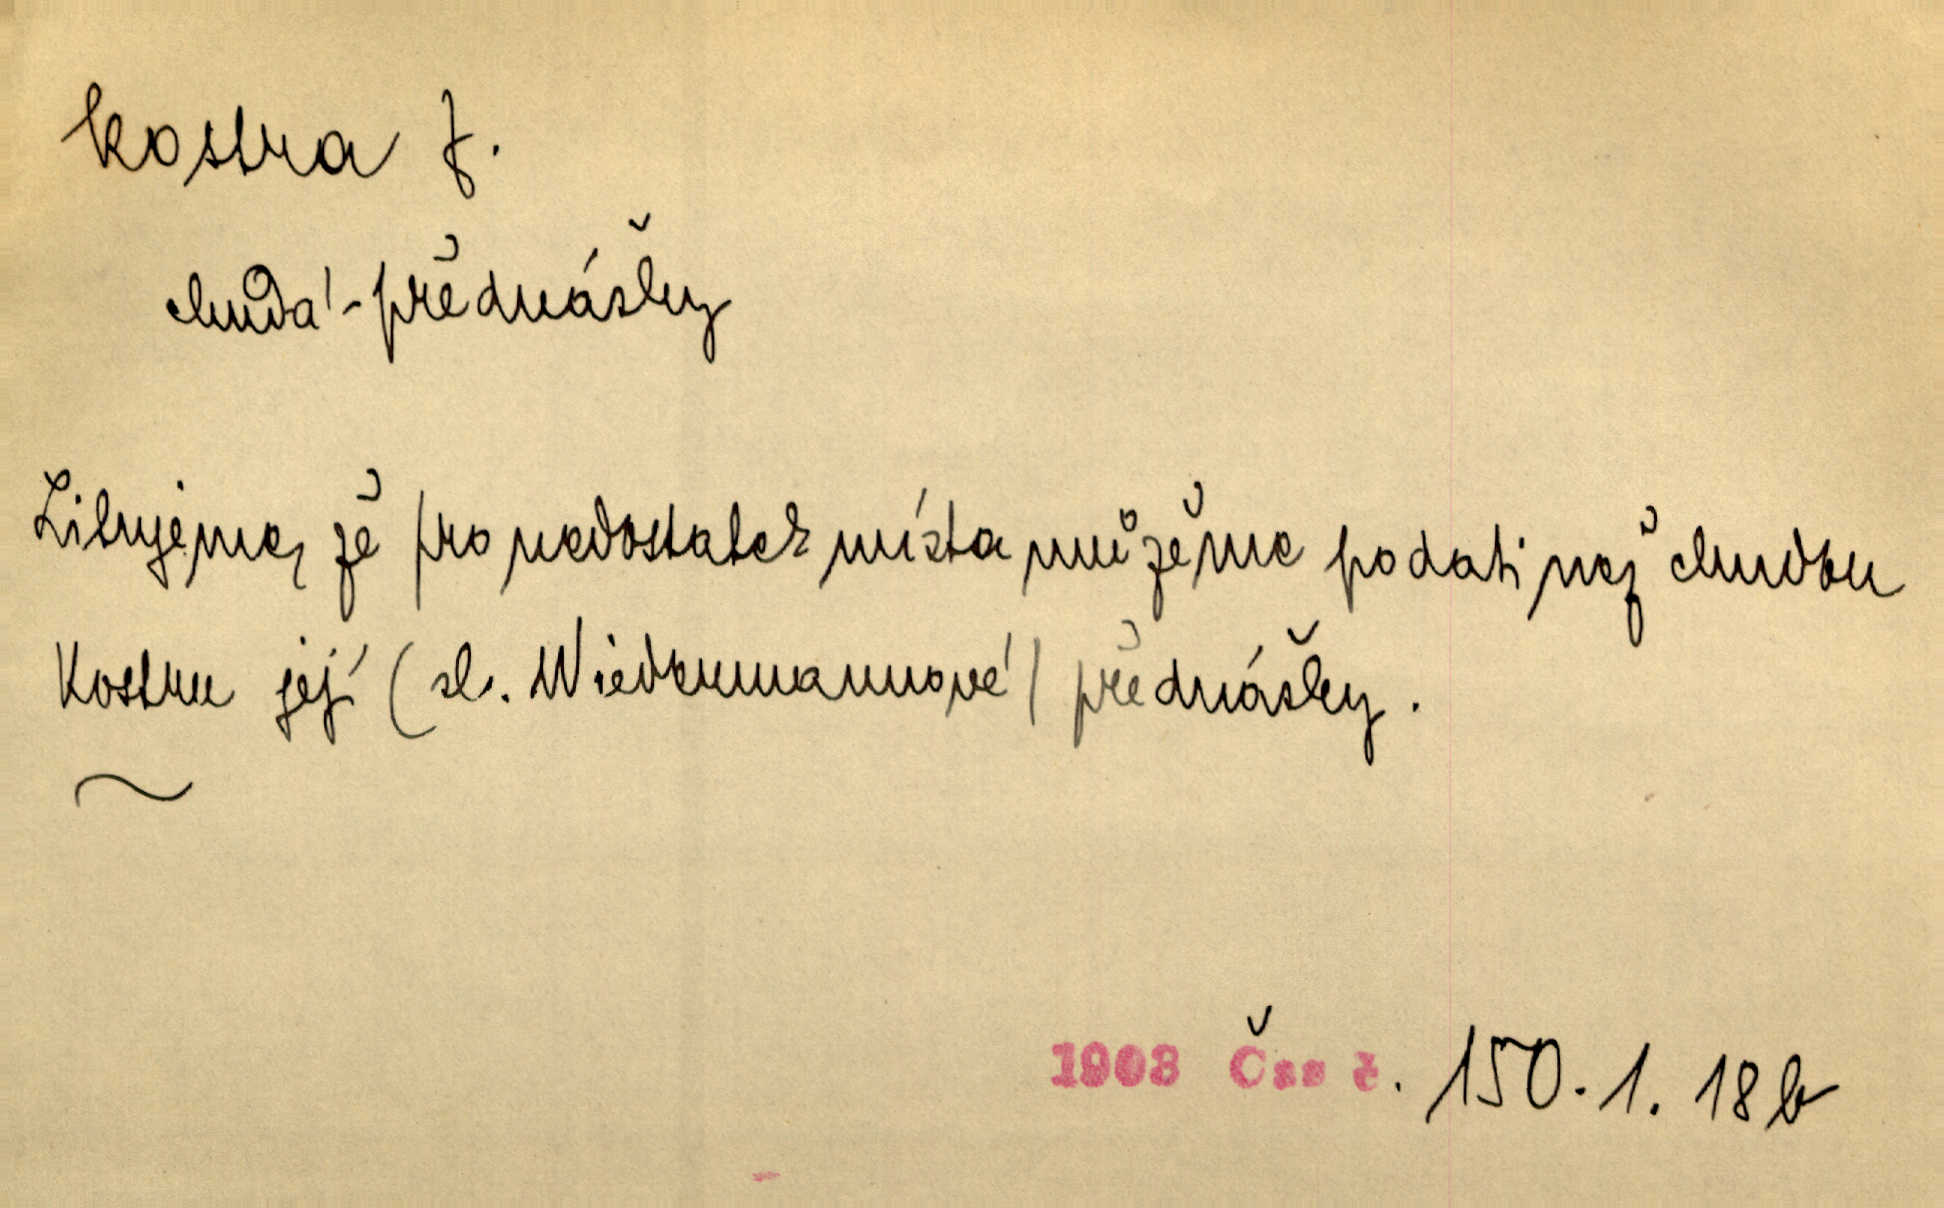 kostra f.
chudá - přednášky
Litujeme, že pro nedostatek místa můžeme podati než chudou
kostru její (sl. Wiedermannové) přednášky.
1903 Čas č. 150. 1. 18 b